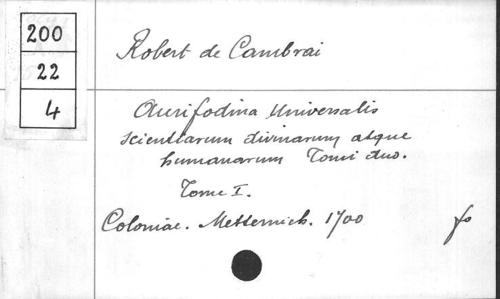 200
22
4
Robert de Cambrai
Aurifodina Universalis
scientiarum divinarum atque
humanarum Tomi duo.
Tome I.
Coloniae. Metternich. 1700 fo